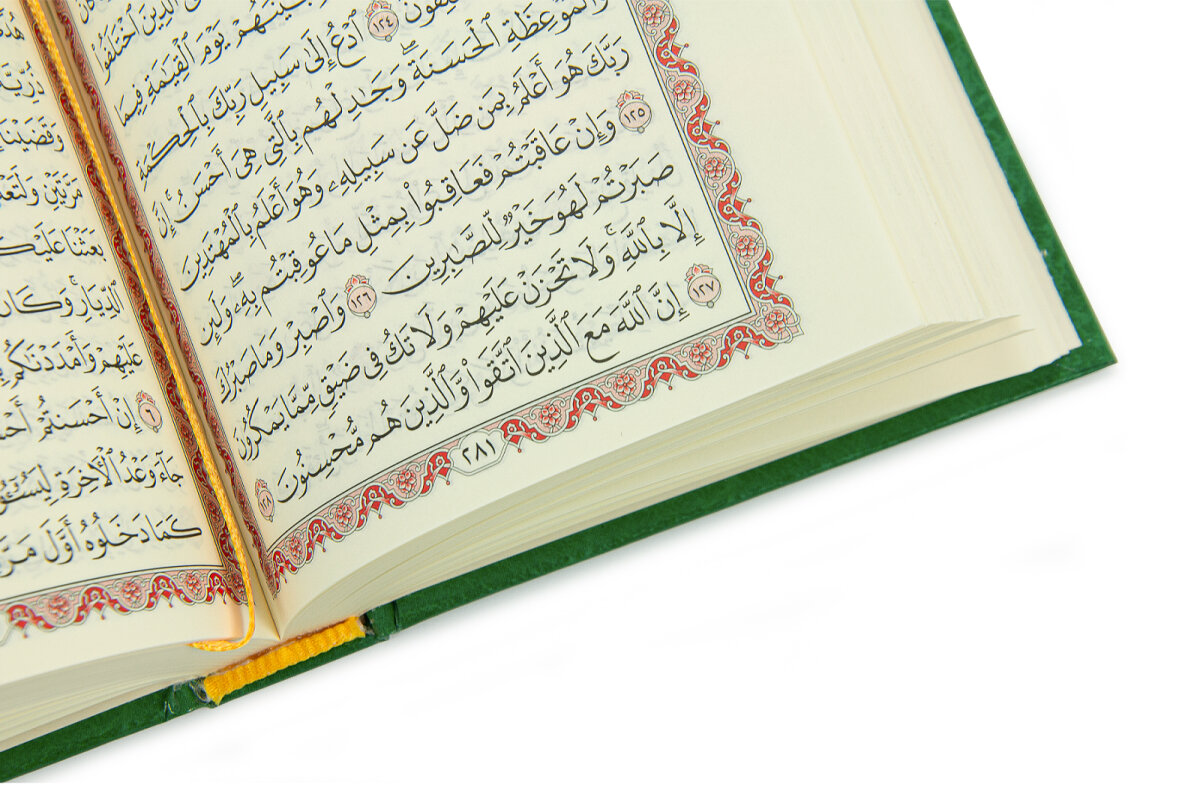 ٱلَّذِينَ ٱخْتَلَفُوا۟
بَيْنَهُمْ يَوْمَ ٱلْقِيَٰمَةِ فِيمَا
١٢٤ ٱدْعُ إِلَىٰ سَبِيلِ رَبِّكَ بِٱلْحِكْمَةِ
وَٱلْمَوْعِظَةِ ٱلْحَسَنَةِۖ وَجَٰدِلْهُم بِٱلَّتِى هِىَ أَحْسَنُۚ إِنَّ
رَبَّكَ هُوَ أَعْلَمُ بِمَن ضَلَّ عَن سَبِيلِهِۦ وَهُوَ أَعْلَمُ بِٱلْمُهْتَدِينَ
١٢٥ وَإِنْ عَاقَبْتُمْ فَعَاقِبُوا۟ بِمِثْلِ مَا عُوقِبْتُم بِهِۦۖ وَلَئِن
صَبَرْتُمْ لَهُوَ خَيْرٌ لِّلصَّٰبِرِينَ ١٢٦ وَٱصْبِرْ وَمَا صَبْرُكَ
إِلَّا بِٱللَّهِۚ وَلَا تَحْزَنْ عَلَيْهِمْ وَلَا تَكُ فِى ضَيْقٍ مِّمَّا يَمْكُرُونَ
١٢٧ إِنَّ ٱللَّهَ مَعَ ٱلَّذِينَ ٱتَّقَوا۟ وَّٱلَّذِينَ هُم مُّحْسِنُونَ ١٢٨
٢٨١
وَقَضَيْنَا
مَرَّتَيْنِ
بَعَثْنَا
ٱلدِّيَارِۚ وَكَانَ
عَلَيْهِمْ وَأَمْدَدْنَٰكُم
٦ إِنْ أَحْسَنتُمْ
جَآءَ وَعْدُ ٱلْءَاخِرَةِ
كَمَا دَخَلُوهُ أَوَّلَ